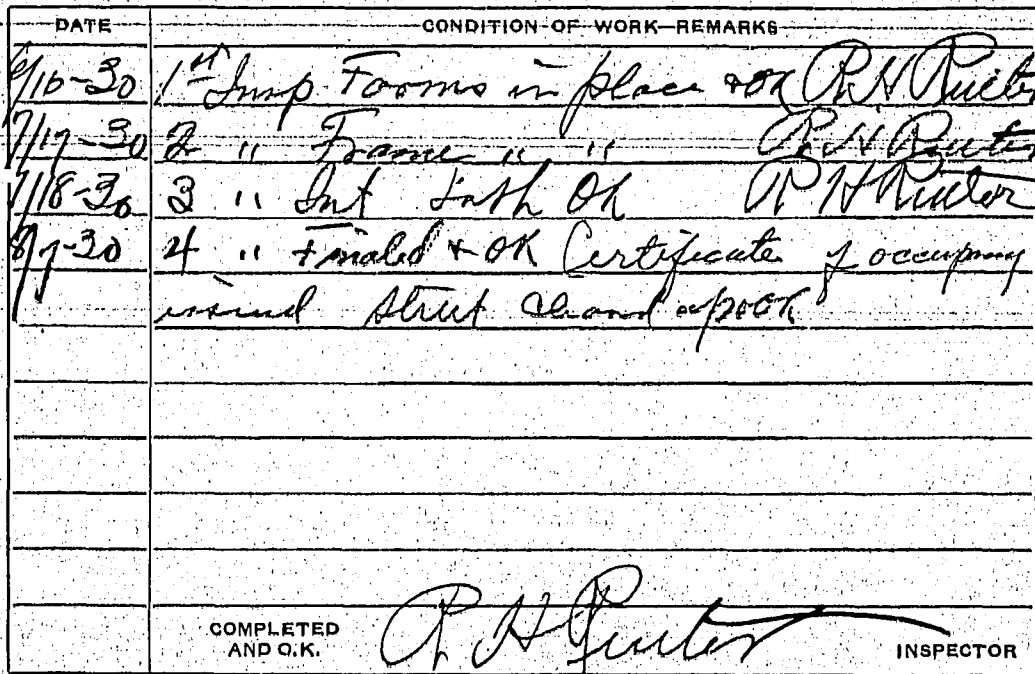 DATE CONDITION OF WORK—REMARKS
6/10-30 1st Insp Forms in place & OK R H Ruiter
7/17-30 2 " Frame " " R. H. Ruiter
7/18-30 3 " Int Lath OK R H Ruiter
8/7-30 4 " Finaled & OK Certificate of occupancy
issued Street cleaned up & OK
COMPLETED
AND O.K. R H Ruiter INSPECTOR